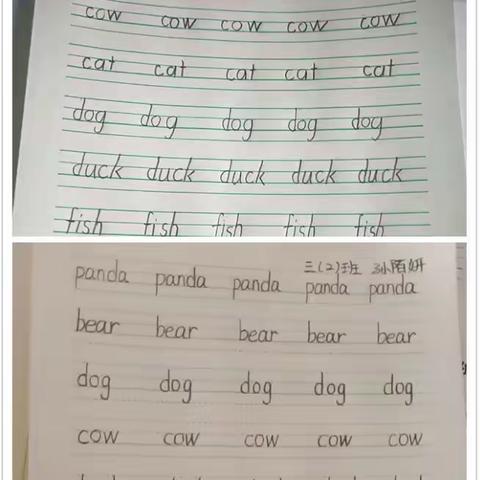 cow cow cow cow cow
cat cat cat cat cat
dog dog dog dog dog
duck duck duck duck duck
fish fish fish fish fish
三(2)班
panda panda panda panda panda
bear bear bear bear bear
dog dog dog dog dog
cow cow cow cow cow